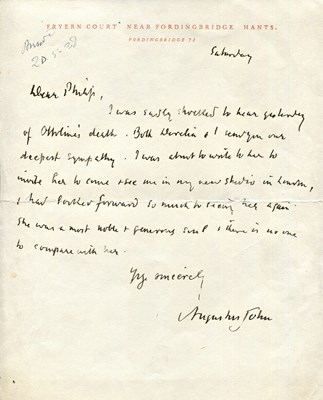 FRYERN COURT NEAR FORDINGBRIDGE HANTS.
FORDINGBRIDGE 93
Saturday
Dear Philip,
I was sadly shocked to hear yesterday
of Ottoline's death. Both Dorelia & I send you our
deepest sympathy. I was about to write to her to
invite her to come & see me in my new studio in London,
& had looked forward so much to seeing her again.
She was a most noble & generous soul & there is no one
to compare with her.
Yrs sincerely
Augustus John